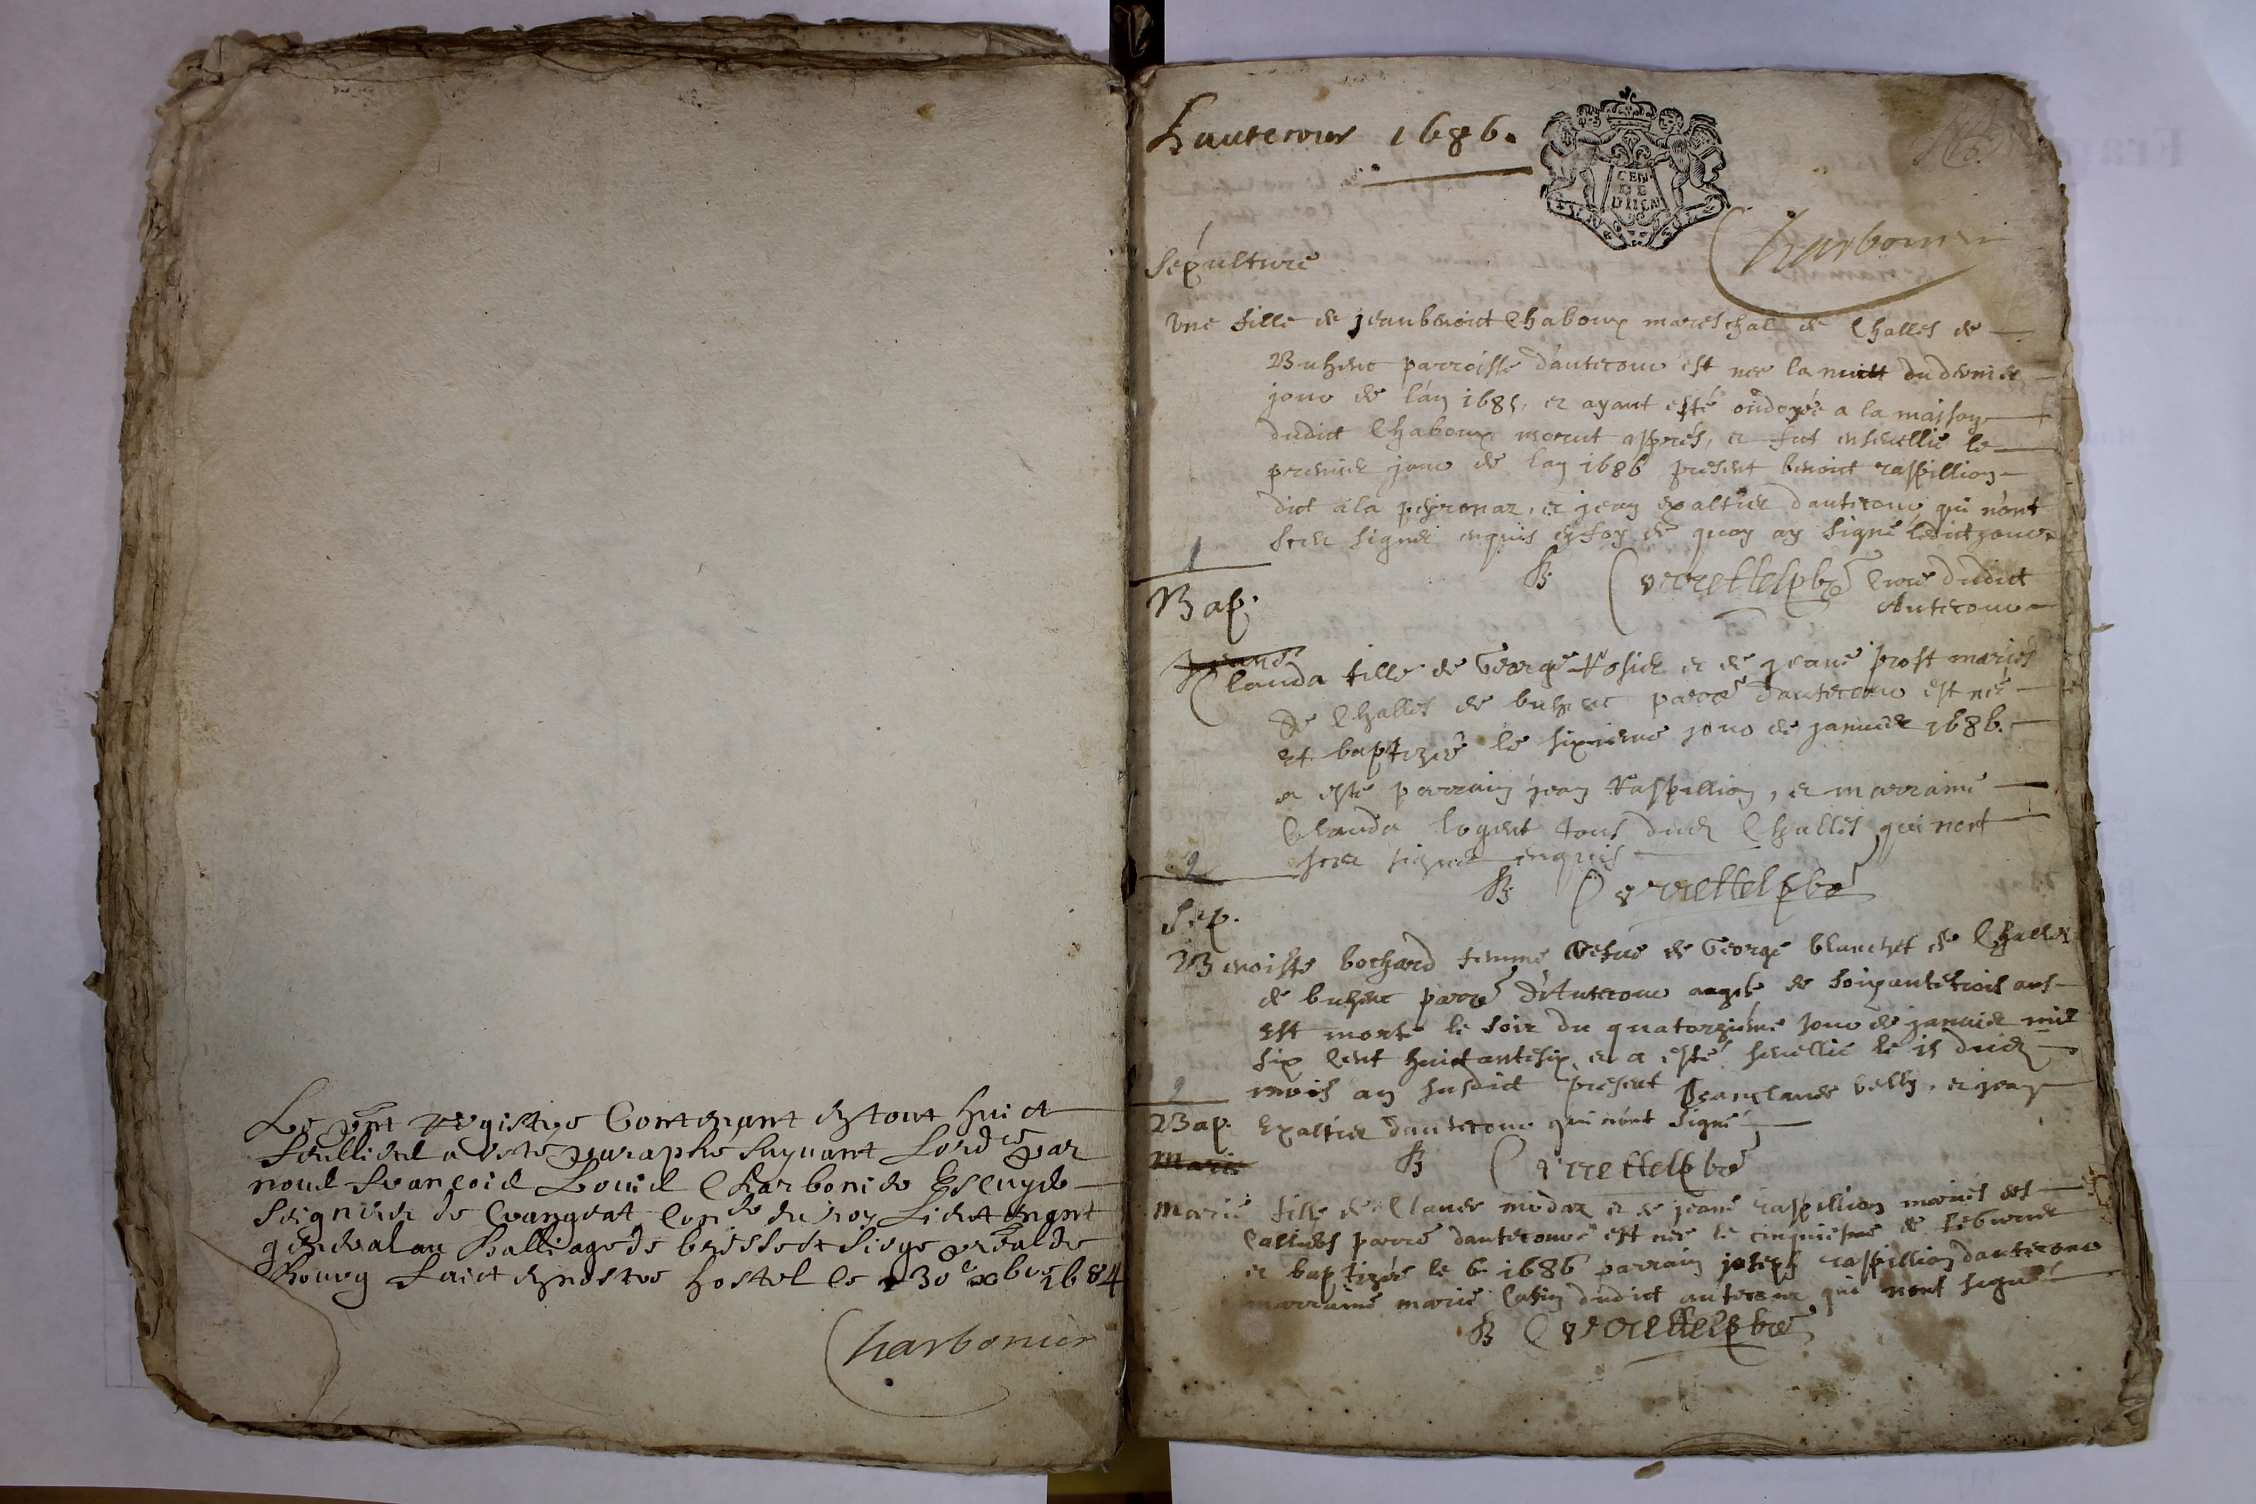 Le pnt registre Contenant en tout huict
feullietz a esté paraphé suyuant Lord.e par
nous francois Louis Charbonier Escuyer
seigneur de Crangeat Con.er du roy Lieutenant
general au Balliage de bresse et siege p.sialde
Bourg faict en nostre hostel le 30e xbre 1684
Charbonier
hautecour 1686.
GEN
DE
Charbonier
sepulture
une fille de jeanbenoict Chaboux mareschal de Challes de
Buhenc parroisse dautecour est nee la nuict du dernier
jour de lan 1685, et ayant esté ondoyée a la maison
dudict Chaboux morut aprés, et fut ensevellie le
premier jour de lan 1686 present benoict raspillion
dict a la peyronaz, et jean exaltier dautecour qui nont
sceu signer enquis en foy de quoy ay signé ledict jour
1
B Verrettes pbre Curé dudict
Autecour
Bap.
Jeane
Clauda fille de George Rosier et de jeane prost mariés
De Challes de buhenc parre dautecour est née
et baptizée le sixieme jour de januier 1686.
a esté parrain jean Raspillion, et marraine
Clauda logent tous dud Challes qui nont
sceu signer enquis
2
B Verrettes pbre
Sep.
Benoiste bochard femme vefue de George blanchet de Challes
de buhenc parre d'Autecour aagée de soixantetrois ans
est morte le soir du quatorzieme jour de januier mil
six cent huictantesix et a esté sevellie le 15 dud
mois an susdict present Jeanclaude velly, et jean
Exaltier dautecour qui nont signé
2
B Verrettes pbre
Bap.
Marie
Marie fille de Claude modaz et de jeane raspillion mariés des
Cassines parre dautecour est née le cinquiesme de feburier
et baptizée le 6 1686 parrain joseph raspillion dautecour
marraine marie Cassin dudict autecour qui nont signé
B Verrettes pbre